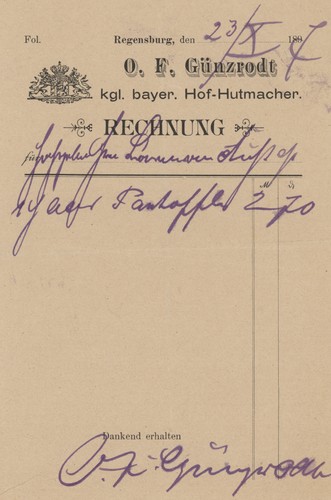 Fol. Regensburg, den 23/X 1897
O. F. Günzrodt
kgl. bayer. Hof-Hutmacher.
RECHNUNG
für
1 Paar Pantoffel 2 70
Dankend erhalten
O. F. Günzrodt